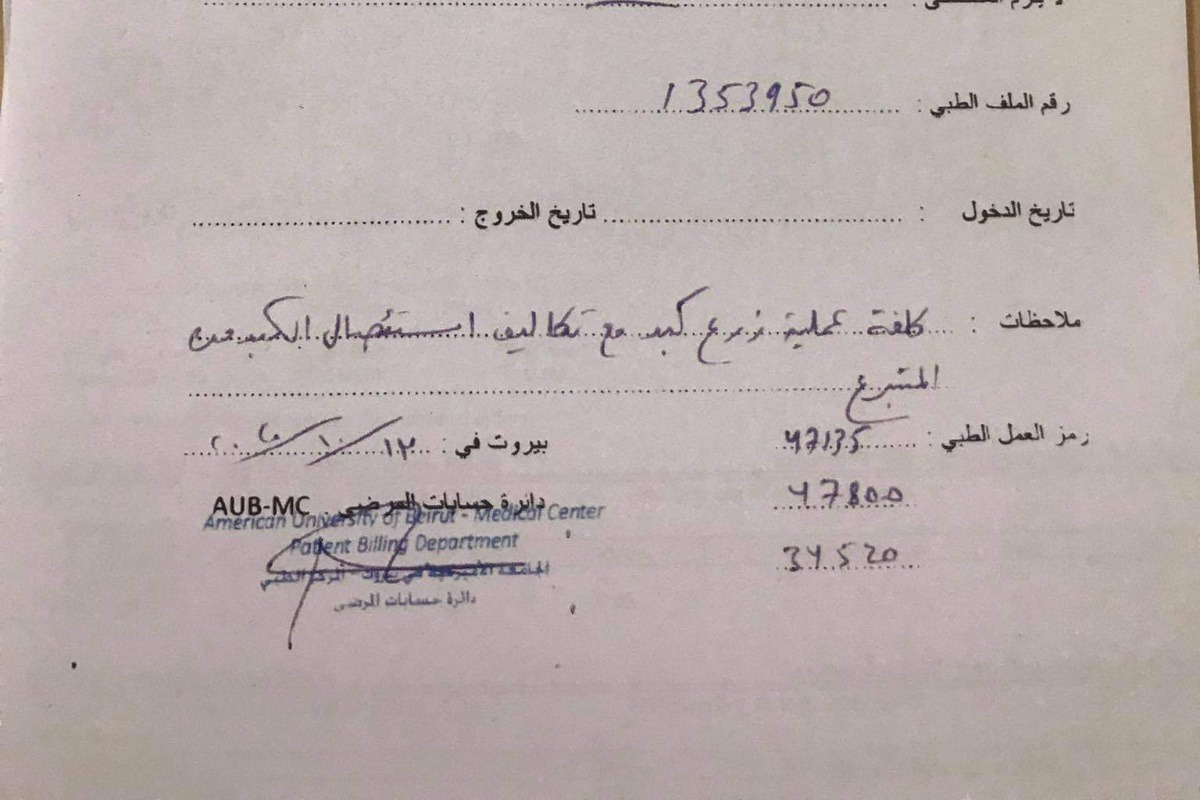 رقم الملف الطبي : 1353950
تاريخ الدخول : تاريخ الخروج :
ملاحظات : كلفة عملية زرع كبد مع تكاليف استئصال الكبد من
المتبرع
رمز العمل الطبي : 47135 بيروت في : ١٢/١٠/٢٠٢٠
47800
دائرة حسابات المرضى AUB-MC
American University of Beirut - Medical Center
Patient Billing Department
34520
الجامعة الأميركية في بيروت - المركز الطبي
دائرة حسابات المرضى